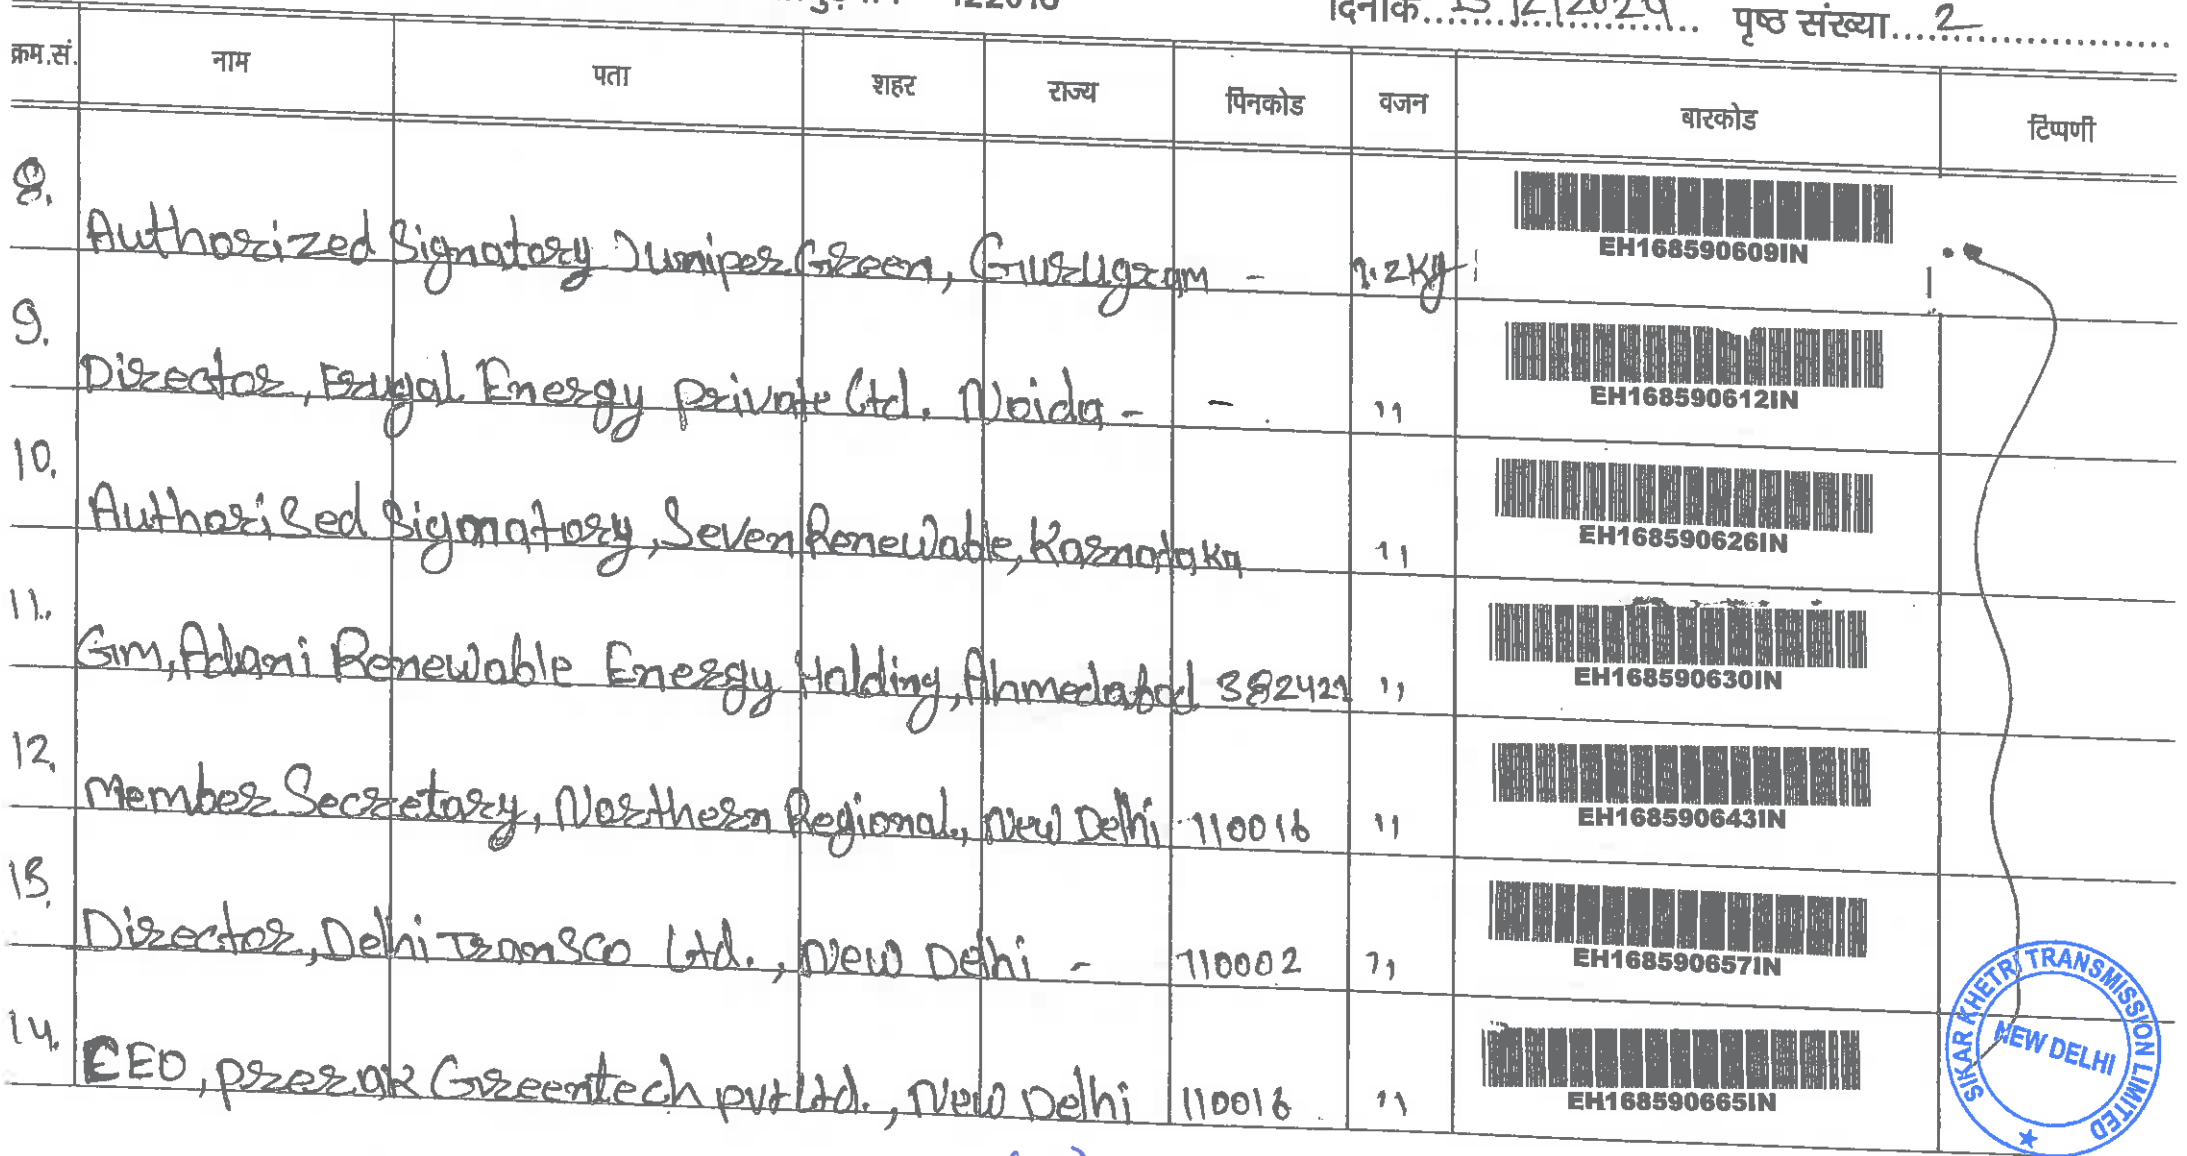 दिनांक 13/2/2024 पृष्ठ संख्या 2
क्रम.सं. नाम पता शहर राज्य पिनकोड वजन बारकोड टिप्पणी
8. Authorized Signatory Juniper Green, Gurugram - 1.2kg EH168590609IN
9. Director, Frugal Energy Private Ltd. Noida - - ,, EH168590612IN
10. Authorised Signatory, Seven Renewable, Karnataka ,, EH168590626IN
11. GM, Adani Renewable Energy Holding, Ahmedabad 382421 ,, EH168590630IN
12. Member Secretary, Northern Regional, New Delhi 110016 ,, EH168590643IN
13. Director, Delhi Transco Ltd., New Delhi - 110002 ,, EH168590657IN
14. CEO, Prerak Greentech pvt Ltd., New Delhi 110016 ,, EH168590665IN
SIKAR KHETRI TRANSMISSION LIMITED
NEW DELHI